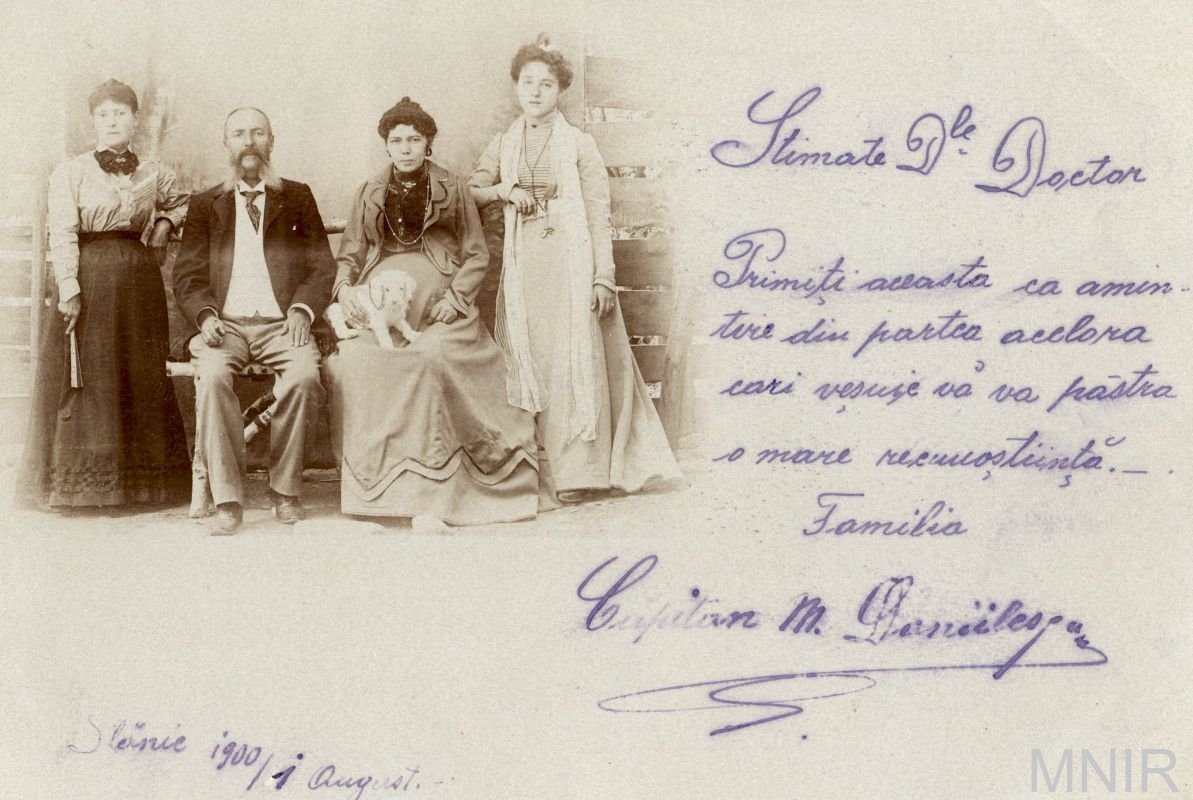 Stimate Dle. Doctor
Primiți aceasta ca amin-
tire din partea acelora
cari veșnic vă va păstra
o mare recunoștiință. _ .
Familia
Căpitan M. Daniilescu
Slănic 1900/1 August. -
MNIR